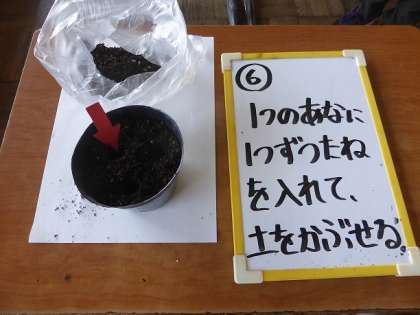 ⑥
1つのあなに
1つずつたね
を入れて、
土をかぶせる。